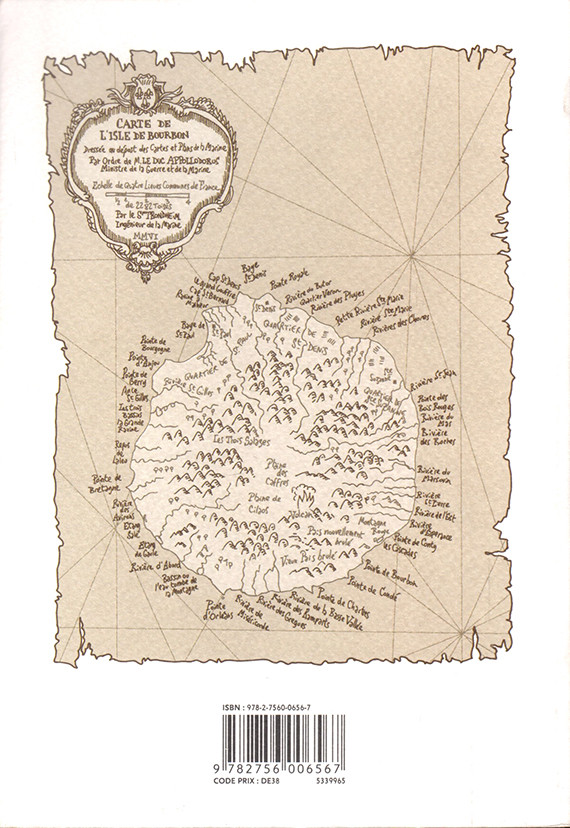 CARTE DE
L'ISLE DE BOURBON
Dressée au départ des Cartes et Plans de la Marine
Par Ordre de M. LE DUC APPOLLODOROS
Ministre de la Guerre et de la Marine
Echelle de Quatre Lieues Communes de France
de 2282 Toises
Par le Sr TRONDHEIM
Ingénieur de la Marine
MMVI
Cap St Denis
Baye
St Denis
Pointe Royale
Rivière du Butor
Rivière des Pluyes
Petite Rivière Ste Marie
Rivière Ste Marie
Rivières des Chevres
Le Grand Gouffre
Cap St Bernard
Baye de
St Paul
St Paul
St DENIS
QUARTIER DE
St DENIS
QUARTIER
Pointe de
Bourgogne
Pointe
d'Anjou
Pointe de
Berry
Rivière St Gilles
Les Trois
Bassins
la Grande
Ravine
Ste
Suzanne
Rivière St Jean
Pointe des
Bois Rouges
Rivière du
Mas
Rivière
des Roches
Les Trois Salases
Repos
de
Laleu
Pointe de
Bretagne
Plaine
des
Caffres
Rivière du
Marsouin
Rivière
St Pierre
Rivière de l'Est
Plaine de
Cilaos
Volcan
Montagne
Rouge
Pais nouvellement
brulé
Vieux Pais brulé
Rivière
des
Avirons
Etang
Salé
Etang
du Gaule
Rivière d'Abord
Pointe de Conty
les Cascades
Pointe de Bourbon
Pointe de Condé
Pointe de Chartres
Rivière de la Basse Vallée
Rivière des Remparts
Rivière des Gregues
Rivière de
Miséricorde
Pointe
d'Orléans
ISBN : 978-2-7560-0656-7
9 782756 006567
CODE PRIX : DE38 5339965